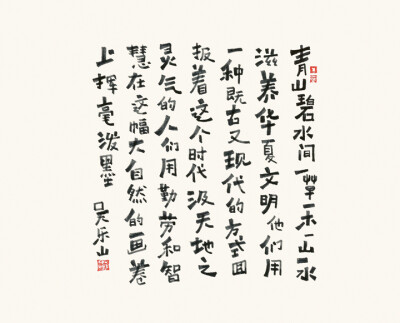 青山碧水间一草一木一山一水
滋养华夏文明他们用
一种既古又现代的方式回
报着这个时代汲天地之
灵气的人们用勤劳和智
慧在这幅大自然的画卷
上挥毫泼墨
吴乐山